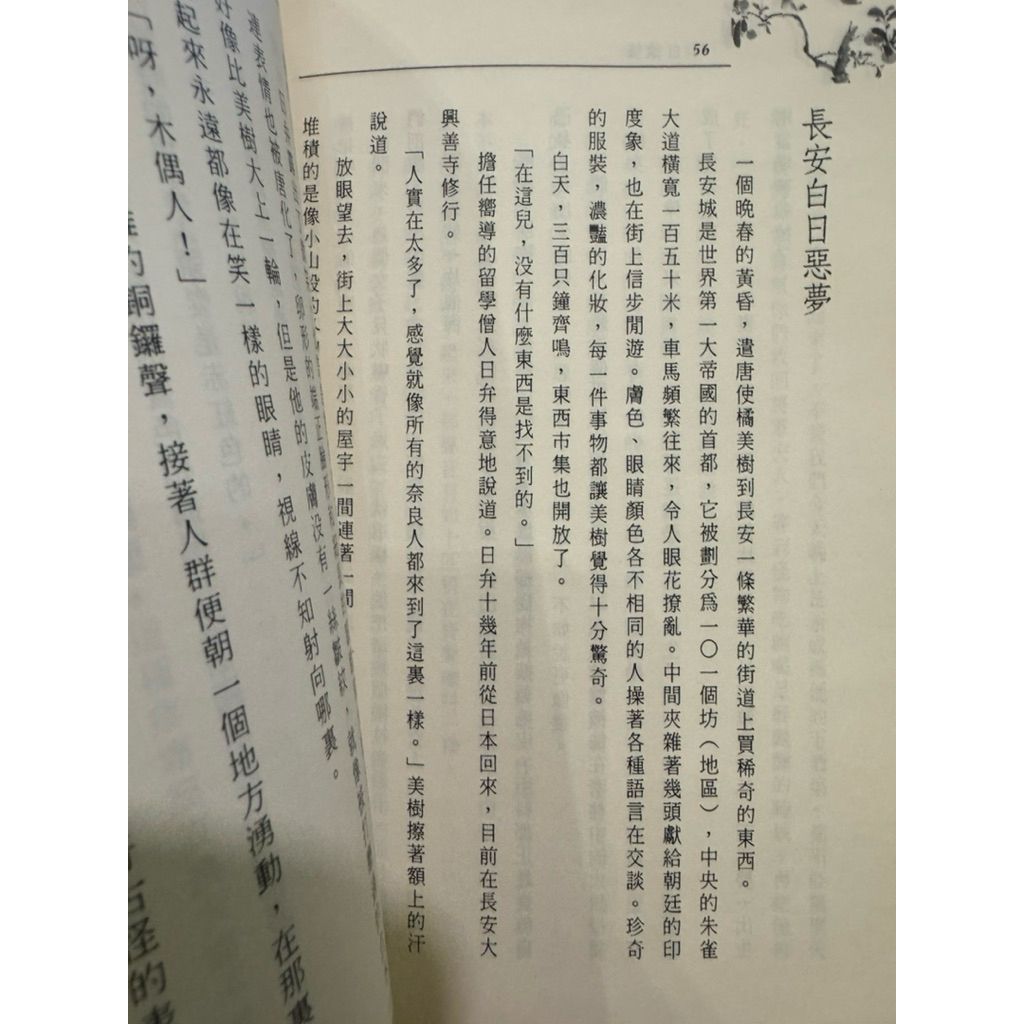 56
長安白日惡夢
一個晚春的黃昏，遣唐使橘美樹到長安一條繁華的街道上買稀奇的東西。
長安城是世界第一大帝國的首都，它被劃分爲一〇一個坊（地區），中央的朱雀
大道橫寬一百五十米，車馬頻繁往來，令人眼花撩亂。中間夾雜著幾頭獻給朝廷的印
度象，也在街上信步閒遊。膚色、眼睛顏色各不相同的人操著各種語言在交談。珍奇
的服裝，濃豔的化妝，每一件事物都讓美樹覺得十分驚奇。
白天，三百只鐘齊鳴，東西市集也開放了。
「在這兒，没有什麼東西是找不到的。」
擔任嚮導的留學僧人日弁得意地說道。日弁十幾年前從日本回來，目前在長安大
興善寺修行。
「人實在太多了，感覺就像所有的奈良人都來到了這裏一樣。」美樹擦著額上的汗
說道。
放眼望去，街上大大小小的屋宇一間連著一間
堆積的是像小山般的
連表情也被唐化了，卵形的臉
好像比美樹大上一輪，但是他的皮膚没有一絲皺紋，
起來永遠都像在笑一樣的眼睛，視線不知射向哪裏。
「呀，木偶人！」
的銅鑼聲，接著人群便朝一個地方湧動，在那裏
古怪的表